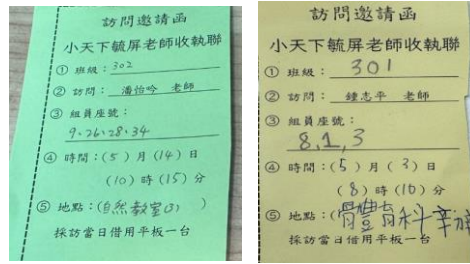 訪問邀請函
小天下毓屏老師收執聯
① 班級：302
② 訪問：潘怡吟 老師
③ 組員座號：
9、26、28、34
④ 時間：(5)月(14)日
(10)時(15)分
⑤ 地點：(自然教室(3) )
採訪當日借用平板一台
訪問邀請函
小天下毓屏老師收執聯
① 班級：301
② 訪問：鍾志平 老師
③ 組員座號：
8,1,3
④ 時間：(5)月(3)日
(8)時(10)分
⑤ 地點：(體育科
採訪當日借用平板一台